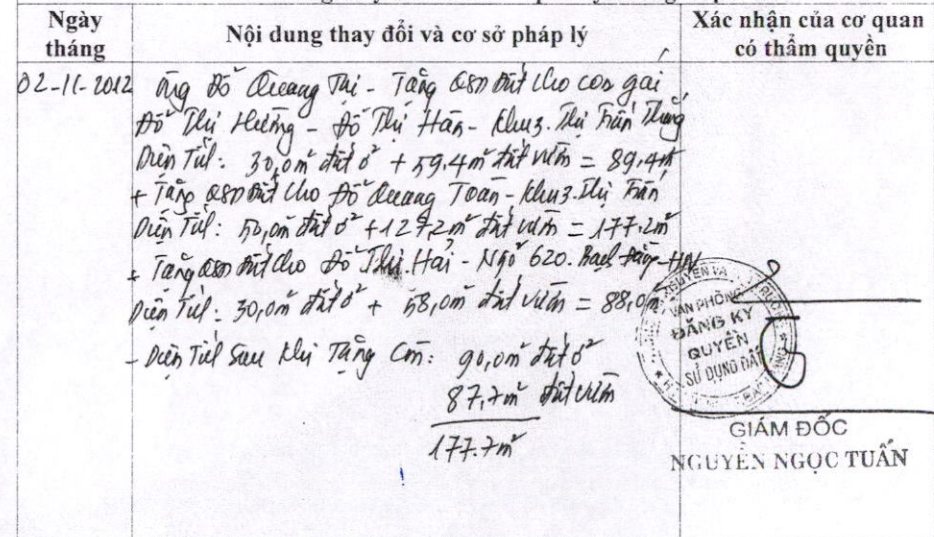 Ngày tháng
Nội dung thay đổi và cơ sở pháp lý
Xác nhận của cơ quan
có thẩm quyền
02-11-2012
Ông Đỗ Quang Thi - Tặng QSD đất cho con gái
Đỗ Thị Hường - Đỗ Thị Hân - Khu 3. Thị Trấn
Diện Tích: 30,0m² đất ở + 59,4m² đất vườn = 89,4m²
+ Tặng QSD đất cho Đỗ Quang Toàn - Khu 3. Thị Trấn
Diện Tích: 50,0m² đất ở + 127,2m² đất vườn = 177.2m²
+ Tặng QSD đất cho Đỗ Thị Hải - Ngõ 620. Bạch Đằng - HN
Diện Tích: 30,0m² đất ở + 58,0m² đất vườn = 88,0m²
- Diện Tích Sau khi Tặng Còn: 90,0m² đất ở
87,7m² đất vườn
177.7m²
VĂN PHÒNG
ĐĂNG KÝ
QUYỀN
SỬ DỤNG ĐẤT
GIÁM ĐỐC
NGUYỄN NGỌC TUẤN